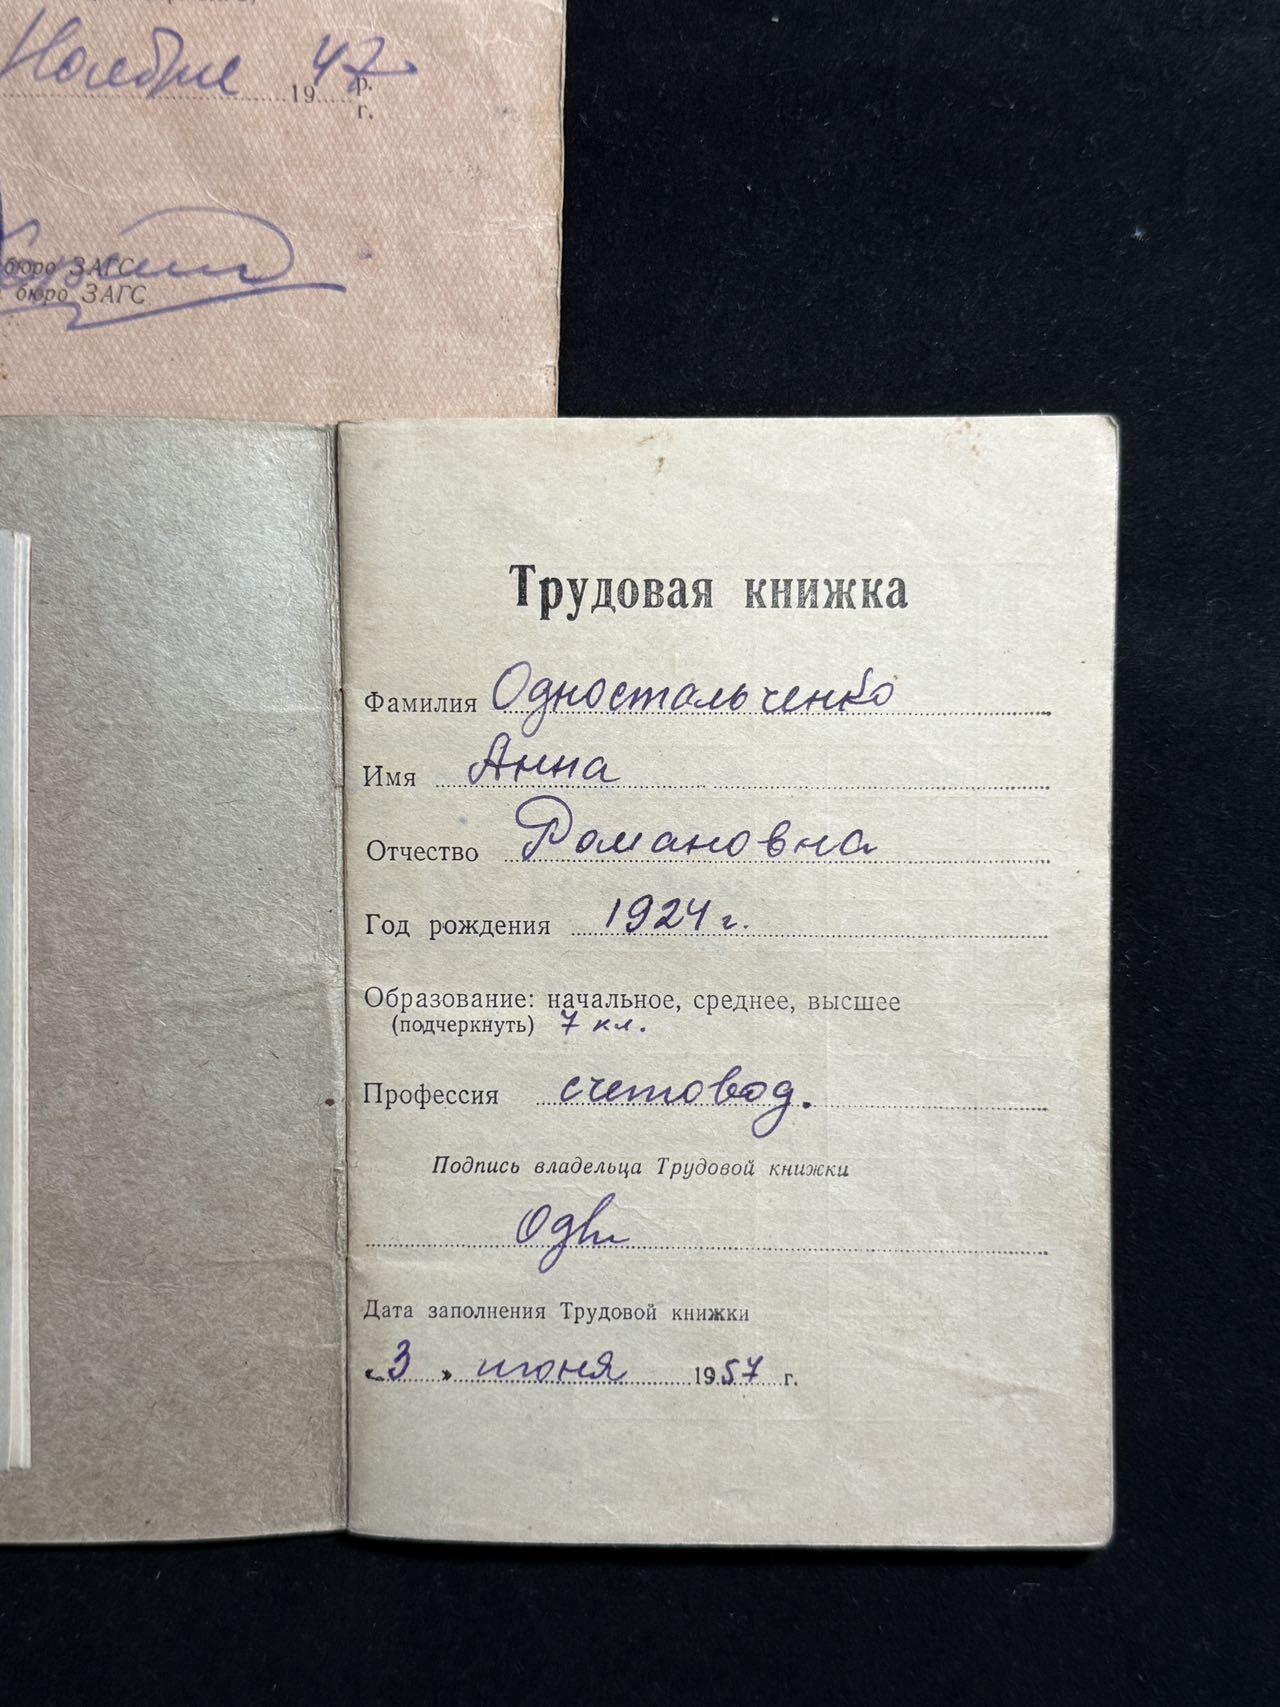 Ноября 1947 р.
г.
бюро ЗАГС
бюро ЗАГС
Трудовая книжка
Фамилия Одностальченко
Имя Анна
Отчество Романовна
Год рождения 1924 г.
Образование: начальное, среднее, высшее
(подчеркнуть) 7 кл.
Профессия счетовод.
Подпись владельца Трудовой книжки
Дата заполнения Трудовой книжки
„3" июня 1957 г.